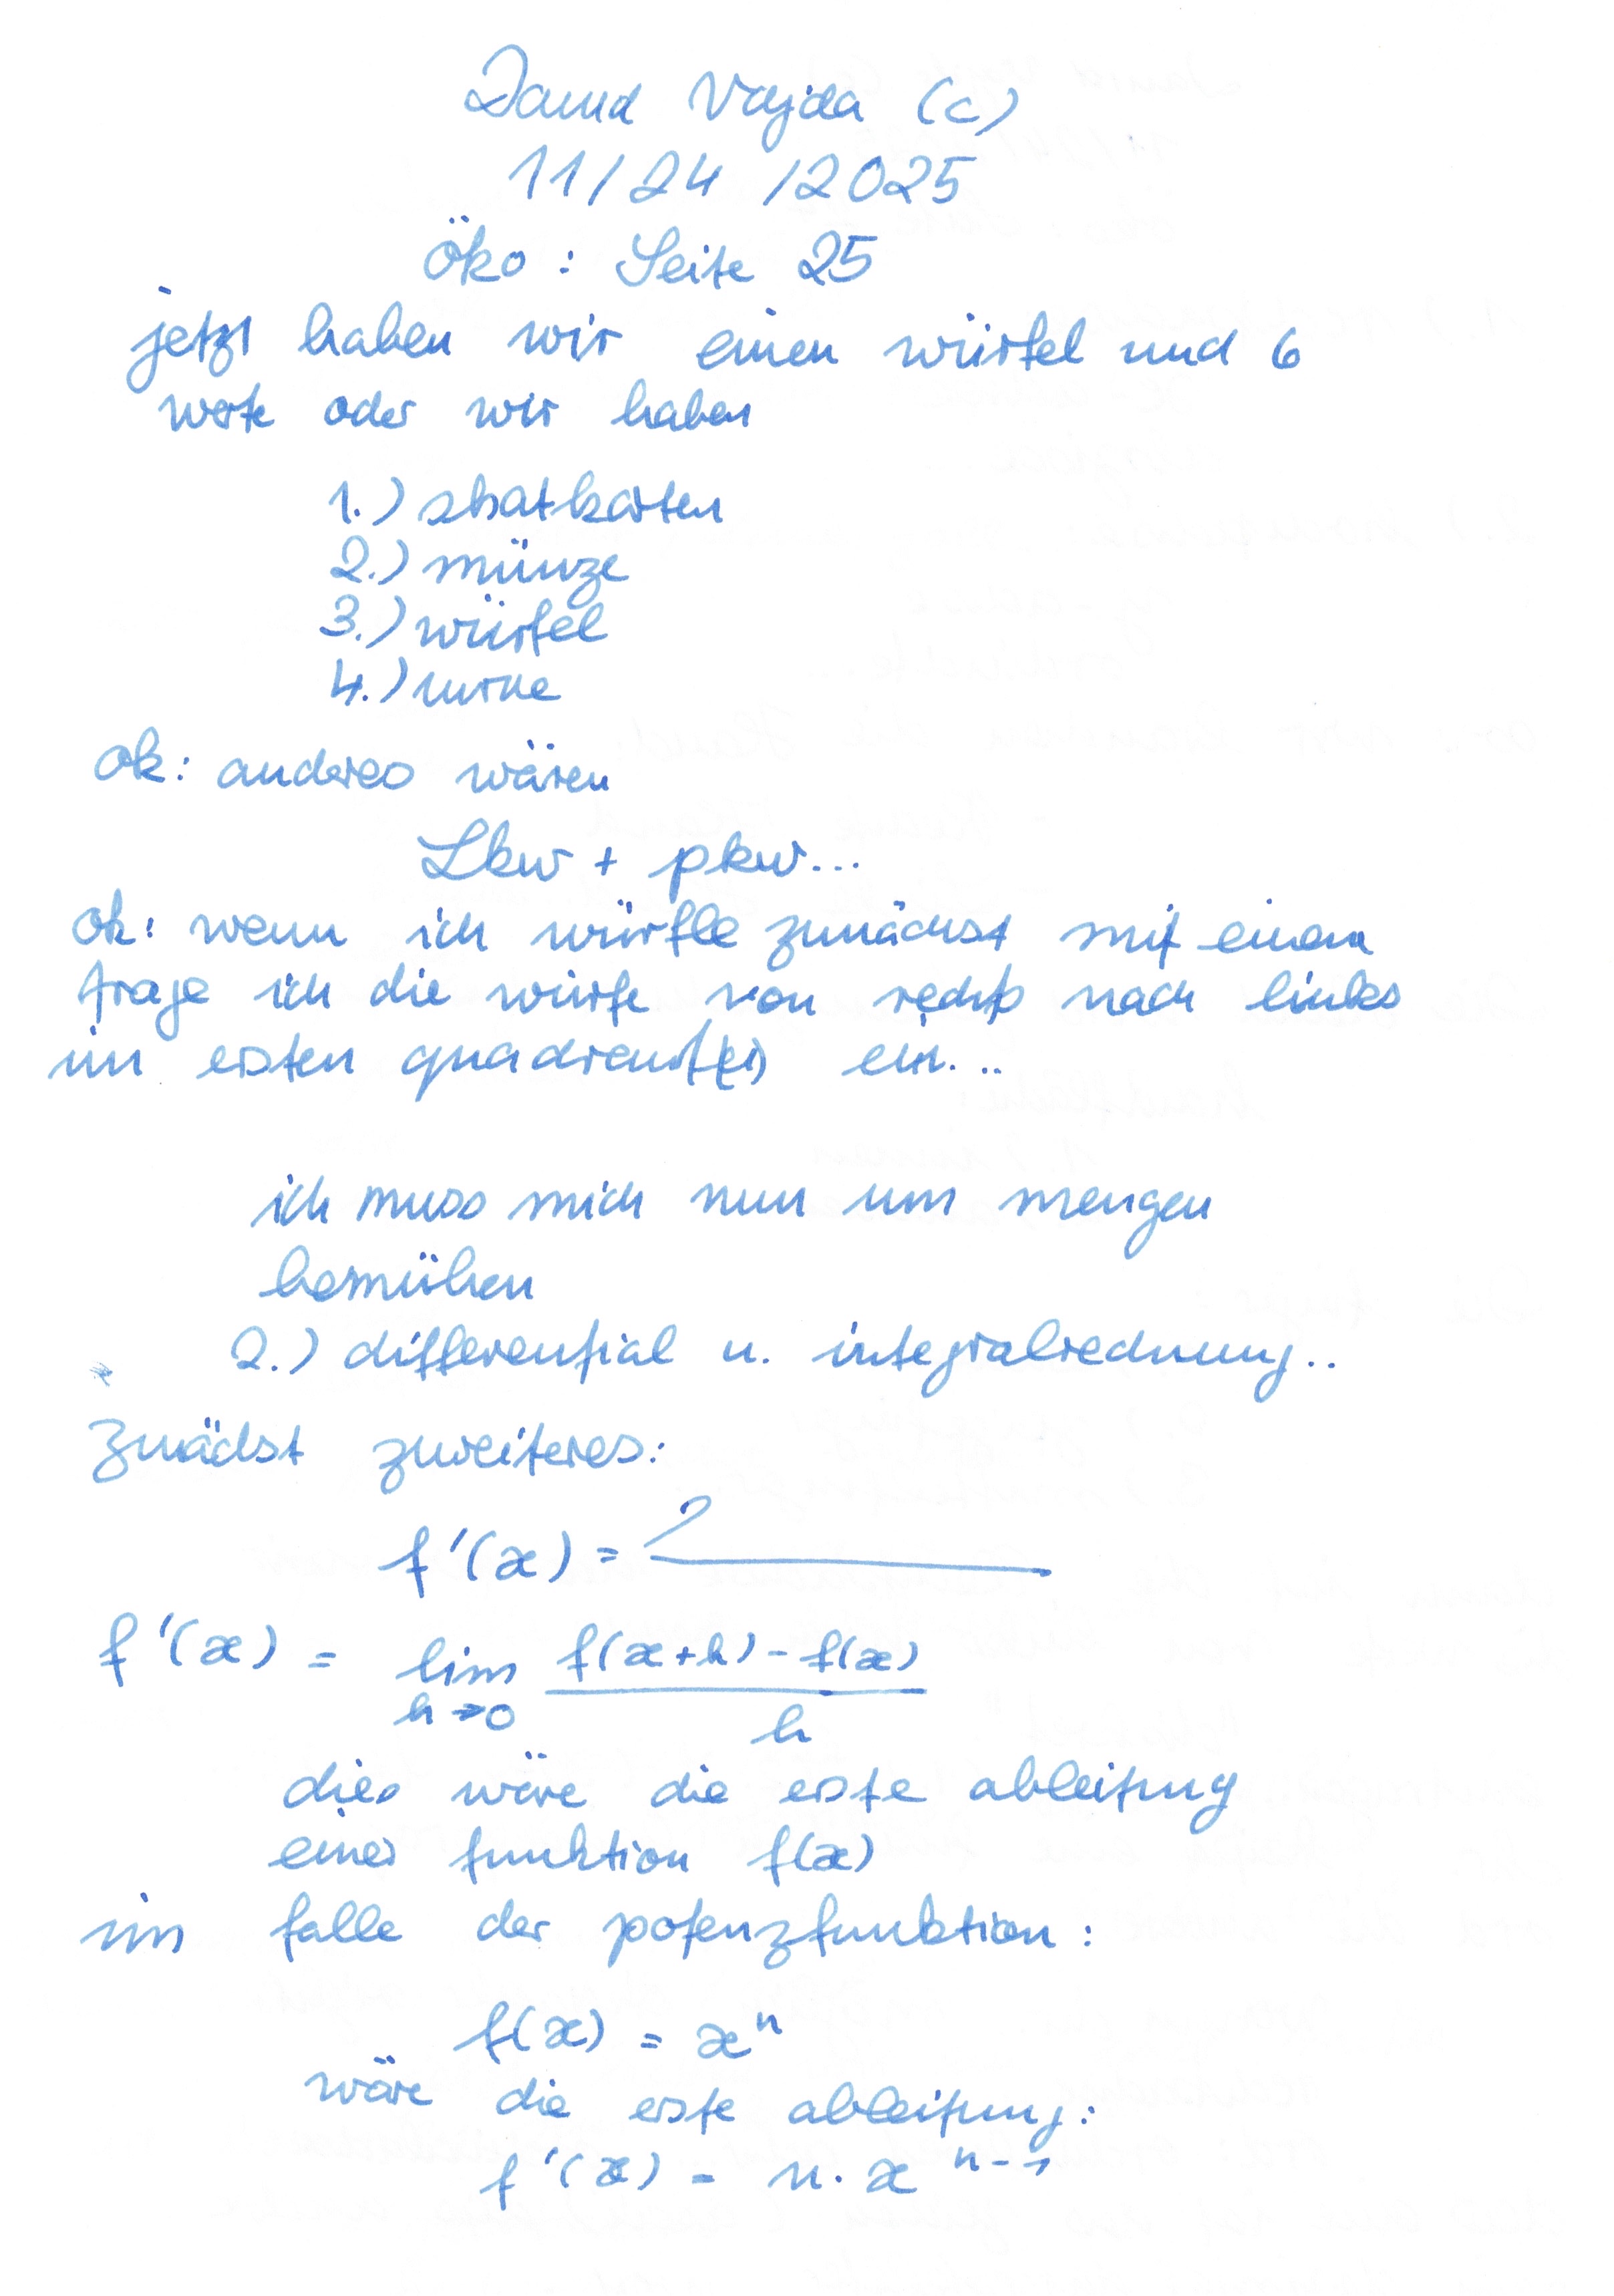 David Vajda (c)
11/24/2025
Öko: Seite 25
jetzt haben wir einen würfel und 6
werte oder wir haben
1.) skatkarten
2.) münze
3.) würfel
4.) urne
ok: anderes wären
Lkw + pkw...
ok: wenn ich würfle zunächst mit einem
trage ich die würfe von rechts nach links
im ersten ein...
ich muss mich nun um mengen
bemühen
2.) differential u. integralrechnung..
Zunächst zweiteres:
f'(x) =
f'(x) = lim h→0 f(x+h) - f(x) / h
dies wäre die erste ableitung
einer funktion f(x)
im falle der potenzfunktion:
f(x) = xⁿ
wäre die erste ableitung:
f'(x) = n · x ⁿ⁻¹